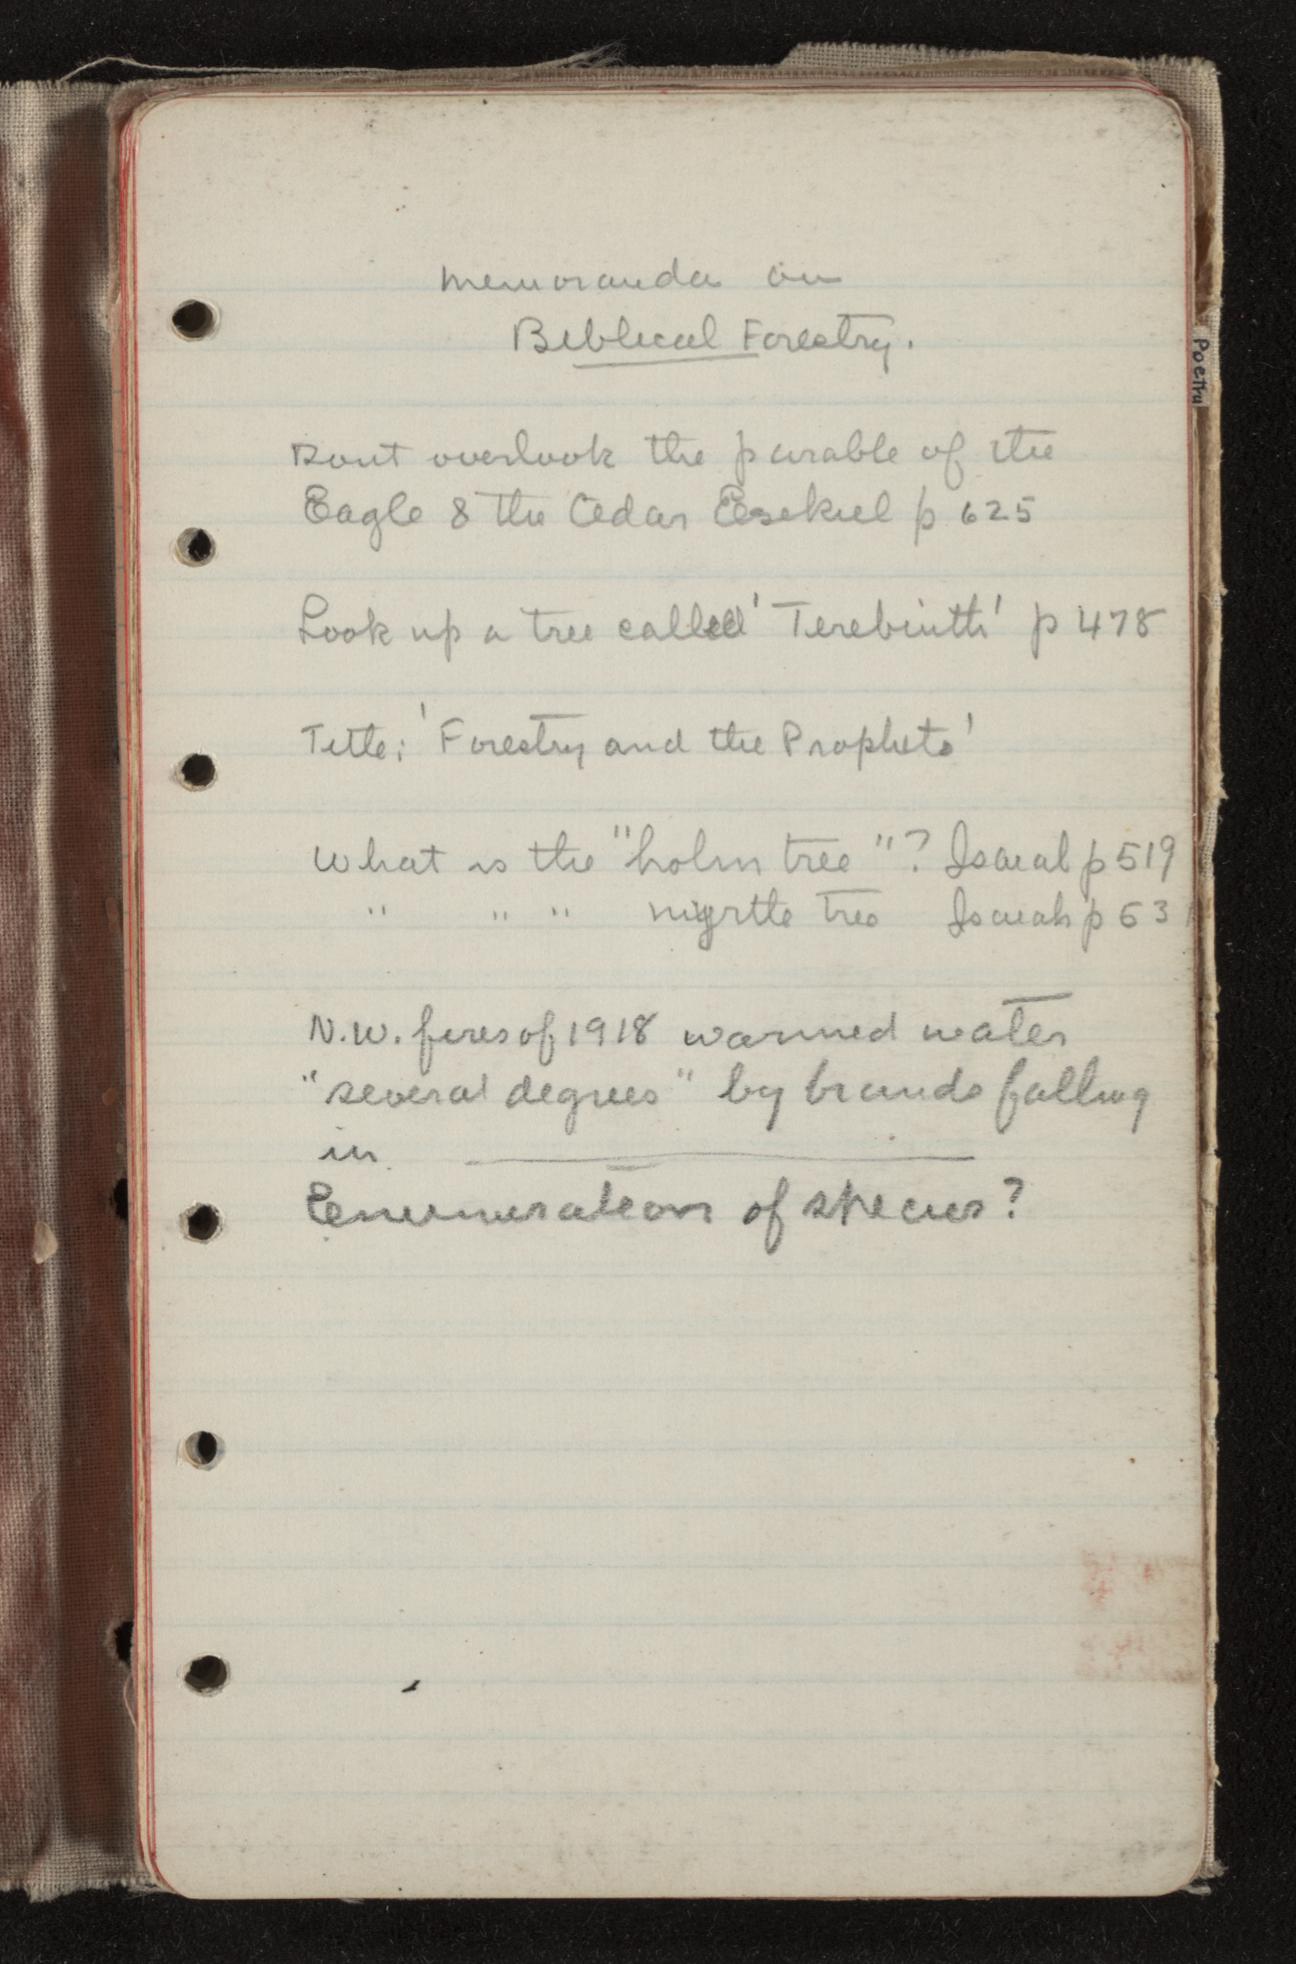 Memoranda on
Biblical Forestry.
Dont overlook the parable of the
Eagle & the Cedar Ezekiel p 625
Look up a tree called 'Terebinth' p 478
Title: 'Forestry and the Prophets'
What is the "holm tree"? Isaiah p 519
" " " myrtle tree Isaiah p 531
N.W. fires of 1918 warmed water
"several degrees" by brands falling
in
Enumeration of species?
Poetry